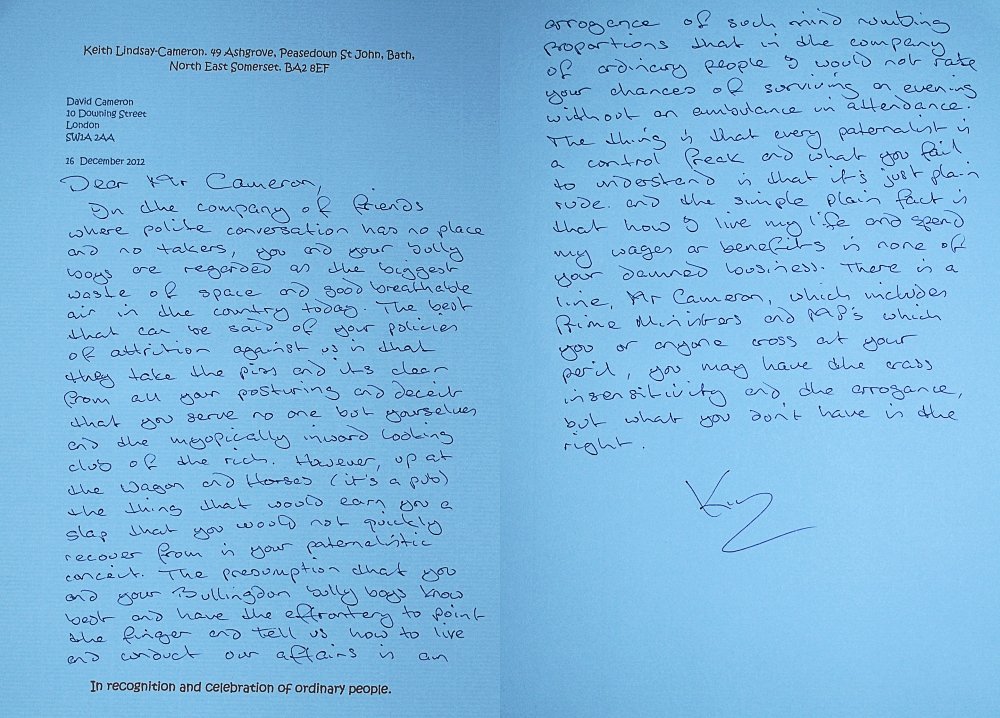 Keith Lindsay-Cameron. 49 Ashgrove, Peasedown St John, Bath,
North East Somerset. BA2 8EF
David Cameron
10 Downing Street
London
SW1A 2AA
16 December 2012
Dear Mr Cameron,
In the company of friends
where polite conversation has no place
and no takers, you and your bully
boys are regarded as the biggest
waste of space and good breathable
air in the country today. The best
that can be said of your policies
of attrition against us is that
they take the piss and its clear
from all your posturing and deceit
that you serve no one but yourselves
and the myopically inward looking
club of the rich. However, up at
the Wagon and Horses (it's a pub)
the thing that would earn you a
slap that you would not quickly
recover from is your paternalistic
conceit. The presumption that you
and your Bullingdon bully boys know
best and have the effrontery to point
the finger and tell us how to live
and conduct our affairs is an
In recognition and celebration of ordinary people.
arrogance of such mind numbing
proportions that in the company
of ordinary people I would not rate
your chances of surviving an evening
without an ambulance in attendance.
The thing is that every paternalist is
a control freak and what you fail
to understand is that it's just plain
rude. and the simple plain fact is
that how I live my life and spend
my wages or benefits is none of
your damned business. There is a
line, Mr Cameron, which includes
Prime Ministers and MP's which
you or anyone cross at your
peril, you may have the crass
insensitivity and the arrogance,
but what you don't have is the
right.